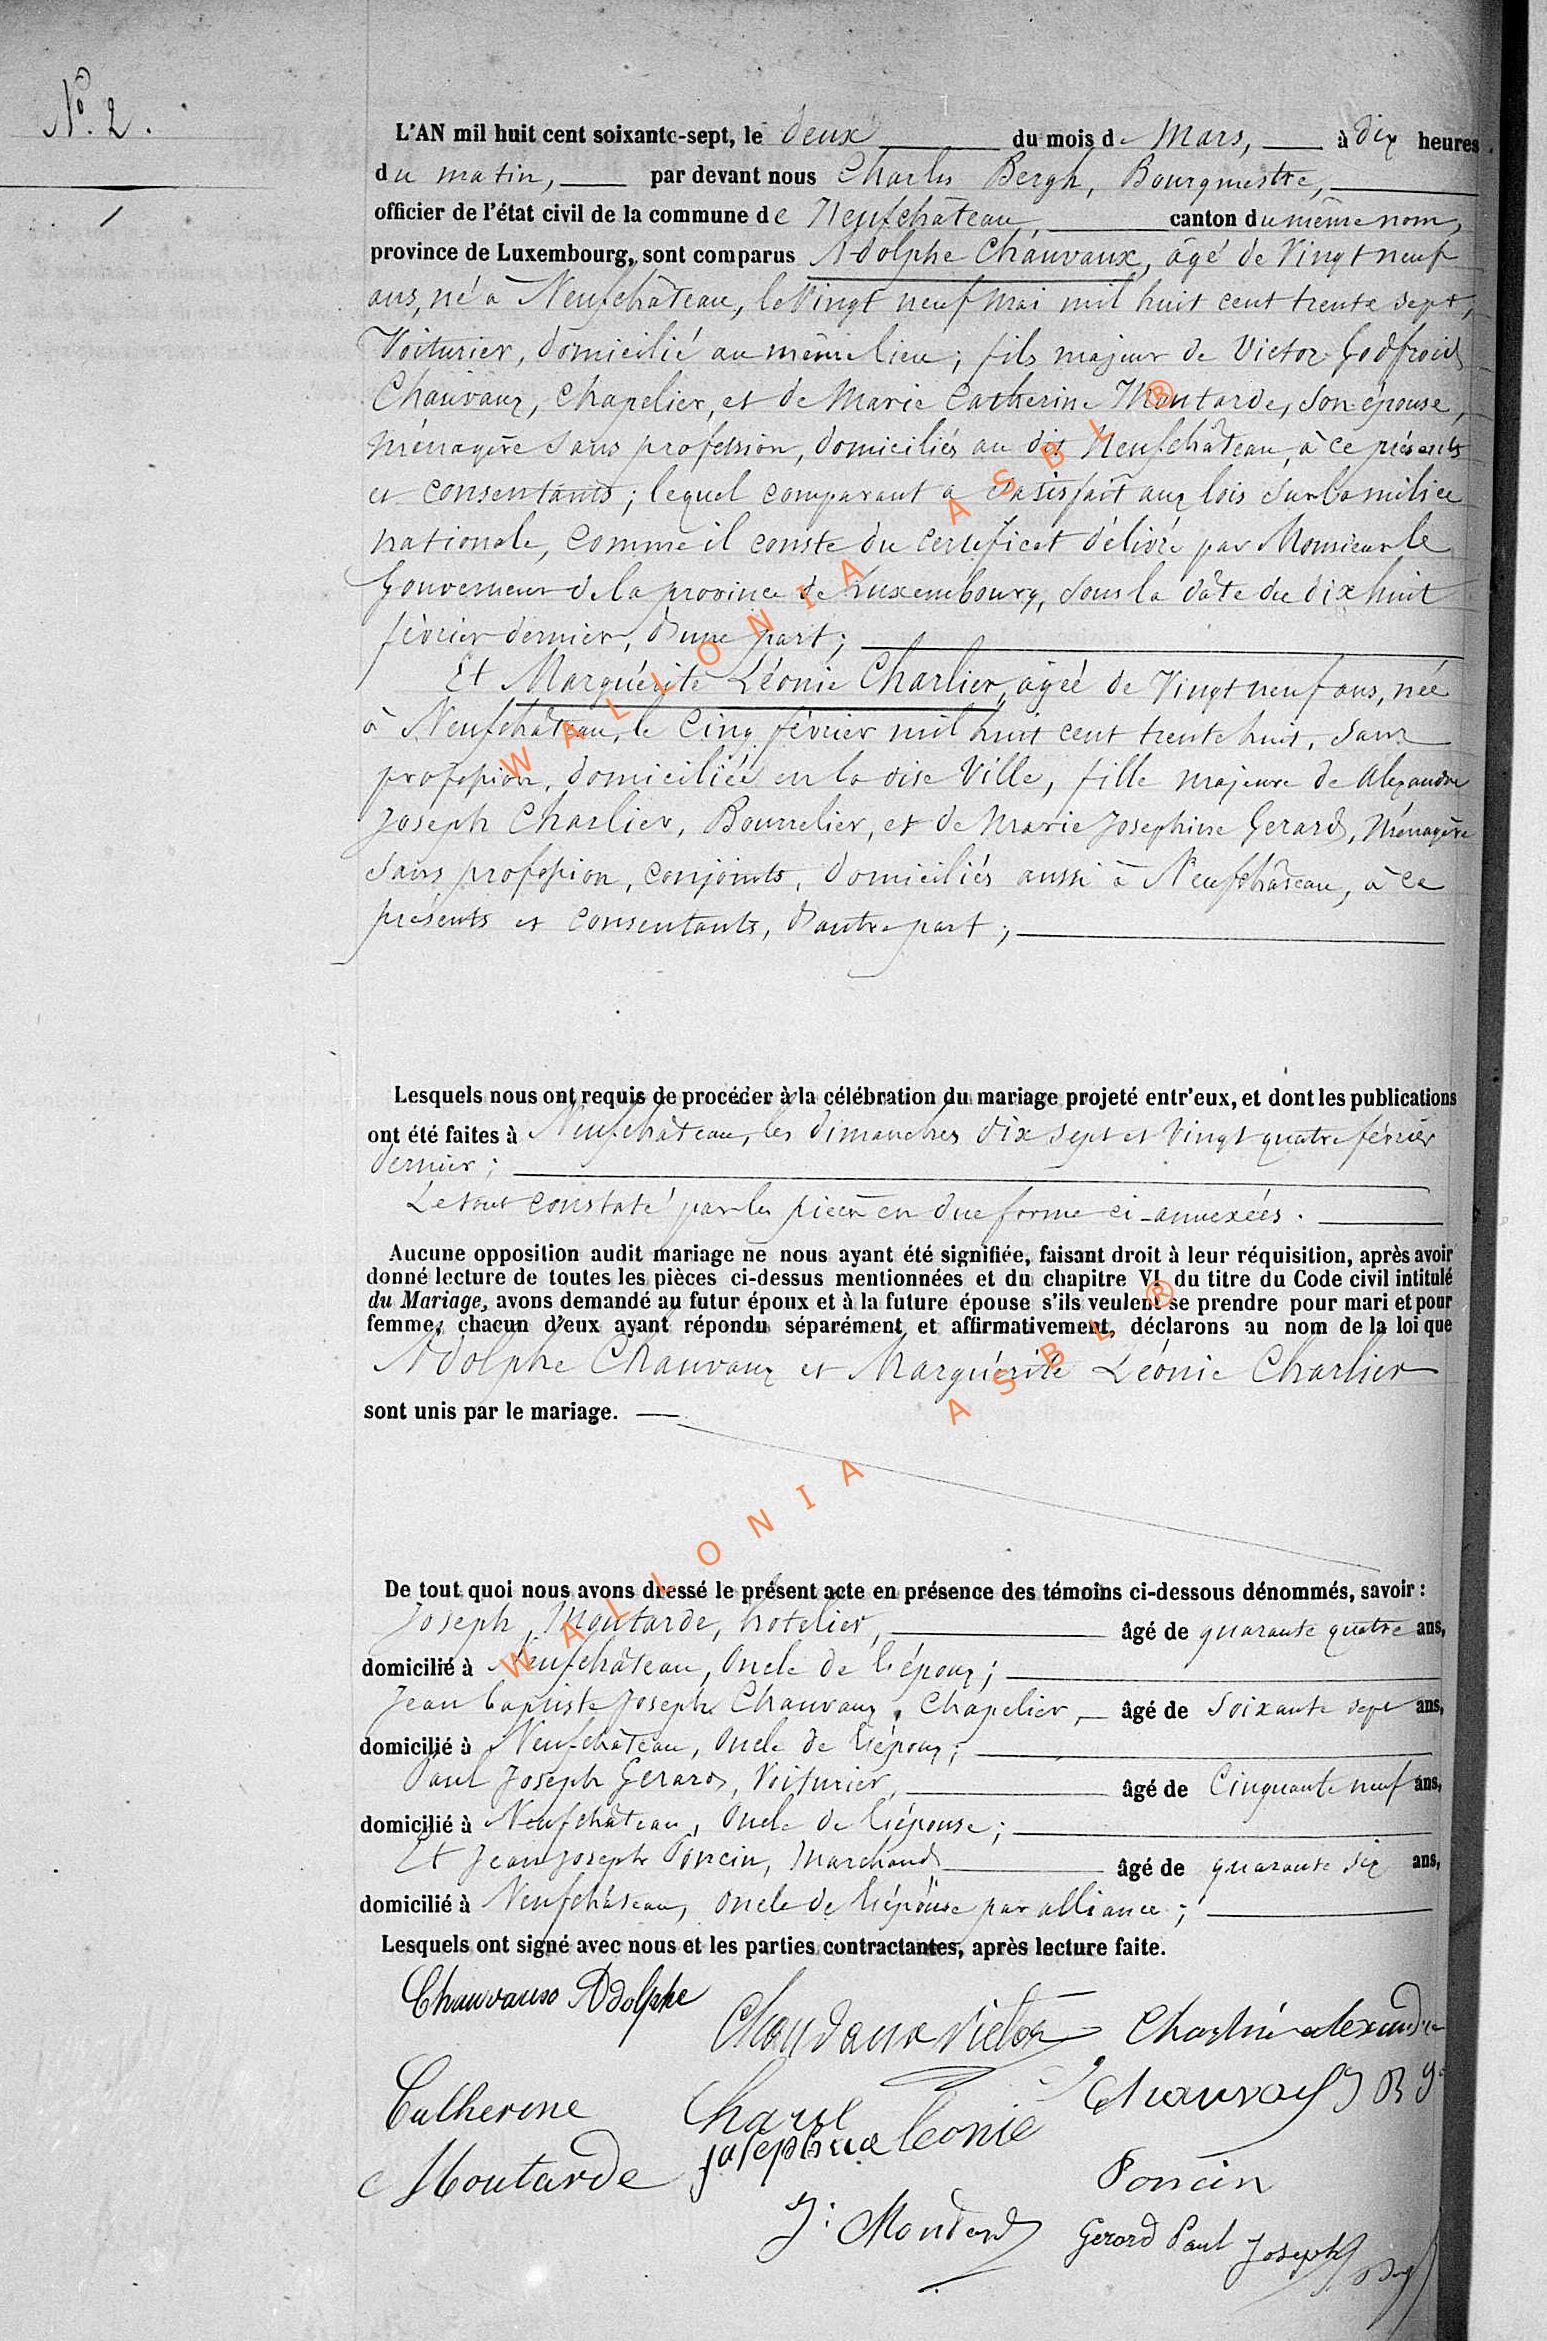 N° 2.
L'AN mil huit cent soixante-sept, le deux du mois de Mars, à dix heures
du matin, par devant nous Charles Bergh, Bourgmestre,
officier de l'état civil de la commune de Neufchâteau, canton du même nom,
province de Luxembourg, sont comparus Adolphe Chauvaux, âgé de Vingt neuf
ans, né à Neufchâteau, le Vingt neuf Mai mil huit cent trente sept,
Voiturier, domicilié au même lieu; fils majeur de Victor Godfroid
Chauvaux, Chapelier, et de Marie Catherine Moutarde, son épouse,
Ménagère sans profession, domiciliés au dit Neufchâteau, à ce présents
et consentants; lequel comparant a satisfait aux lois sur la milice
nationale, comme il conste du certificat délivré par Monsieur le
Gouverneur de la province de Luxembourg, sous la date du dix huit
février dernier, d'une part;
Et Marguérite Léonie Charlier, agée de Vingt neuf ans, née
à Neufchâteau, le Cinq février mil huit cent trente huit, sans
profession, domiciliée en la dise Ville, fille majeure de Alexandre
Joseph Charlier, Bourrelier, et de Marie Josephine Gerard, Ménagère
sans profession, conjoints, domiciliés aussi à Neufchâteau, à ce
présents et consentants, d'autre part;
Lesquels nous ont requis de procéder à la célébration du mariage projeté entr'eux, et dont les publications
ont été faites à Neufchâteau, les dimanches dix sept et Vingt quatre février
dernier;
Le tout constaté par les pièces en due forme ci-annexées.
Aucune opposition audit mariage ne nous ayant été signifiée, faisant droit à leur réquisition, après avoir
donné lecture de toutes les pièces ci-dessus mentionnées et du chapitre VI du titre du Code civil intitulé
du Mariage, avons demandé au futur époux et à la future épouse s'ils veulent se prendre pour mari et pour
femme; chacun d'eux ayant répondu séparément et affirmativement, déclarons au nom de la loi que
Adolphe Chauvaux et Marguérite Léonie Charlier
sont unis par le mariage.
De tout quoi nous avons dressé le présent acte en présence des témoins ci-dessous dénommés, savoir :
Joseph Moutarde, hotelier, âgé de quarante quatre ans,
domicilié à Neufchâteau, Oncle de l'époux;
Jean Baptiste Joseph Chauvaux, Chapelier, âgé de Soixante sept ans,
domicilié à Neufchâteau, Oncle de l'époux;
Paul Joseph Gerard, Voiturier, âgé de Cinquante neuf ans,
domicilié à Neufchâteau, Oncle de l'épouse;
Et Jean Joseph Poncin, Marchand âgé de quarante six ans,
domicilié à Neufchâteau, oncle de l'épouse par alliance;
Lesquels ont signé avec nous et les parties contractantes, après lecture faite.
Chauvaux Adolphe
Chauvaux Victor Charlier alexandre
Catherine
Moutarde
josephine leonie
Poncin
J: Moutarde
Gerard Paul Joseph
WALLONIA ASBL ®
WALLONIA ASBL ®